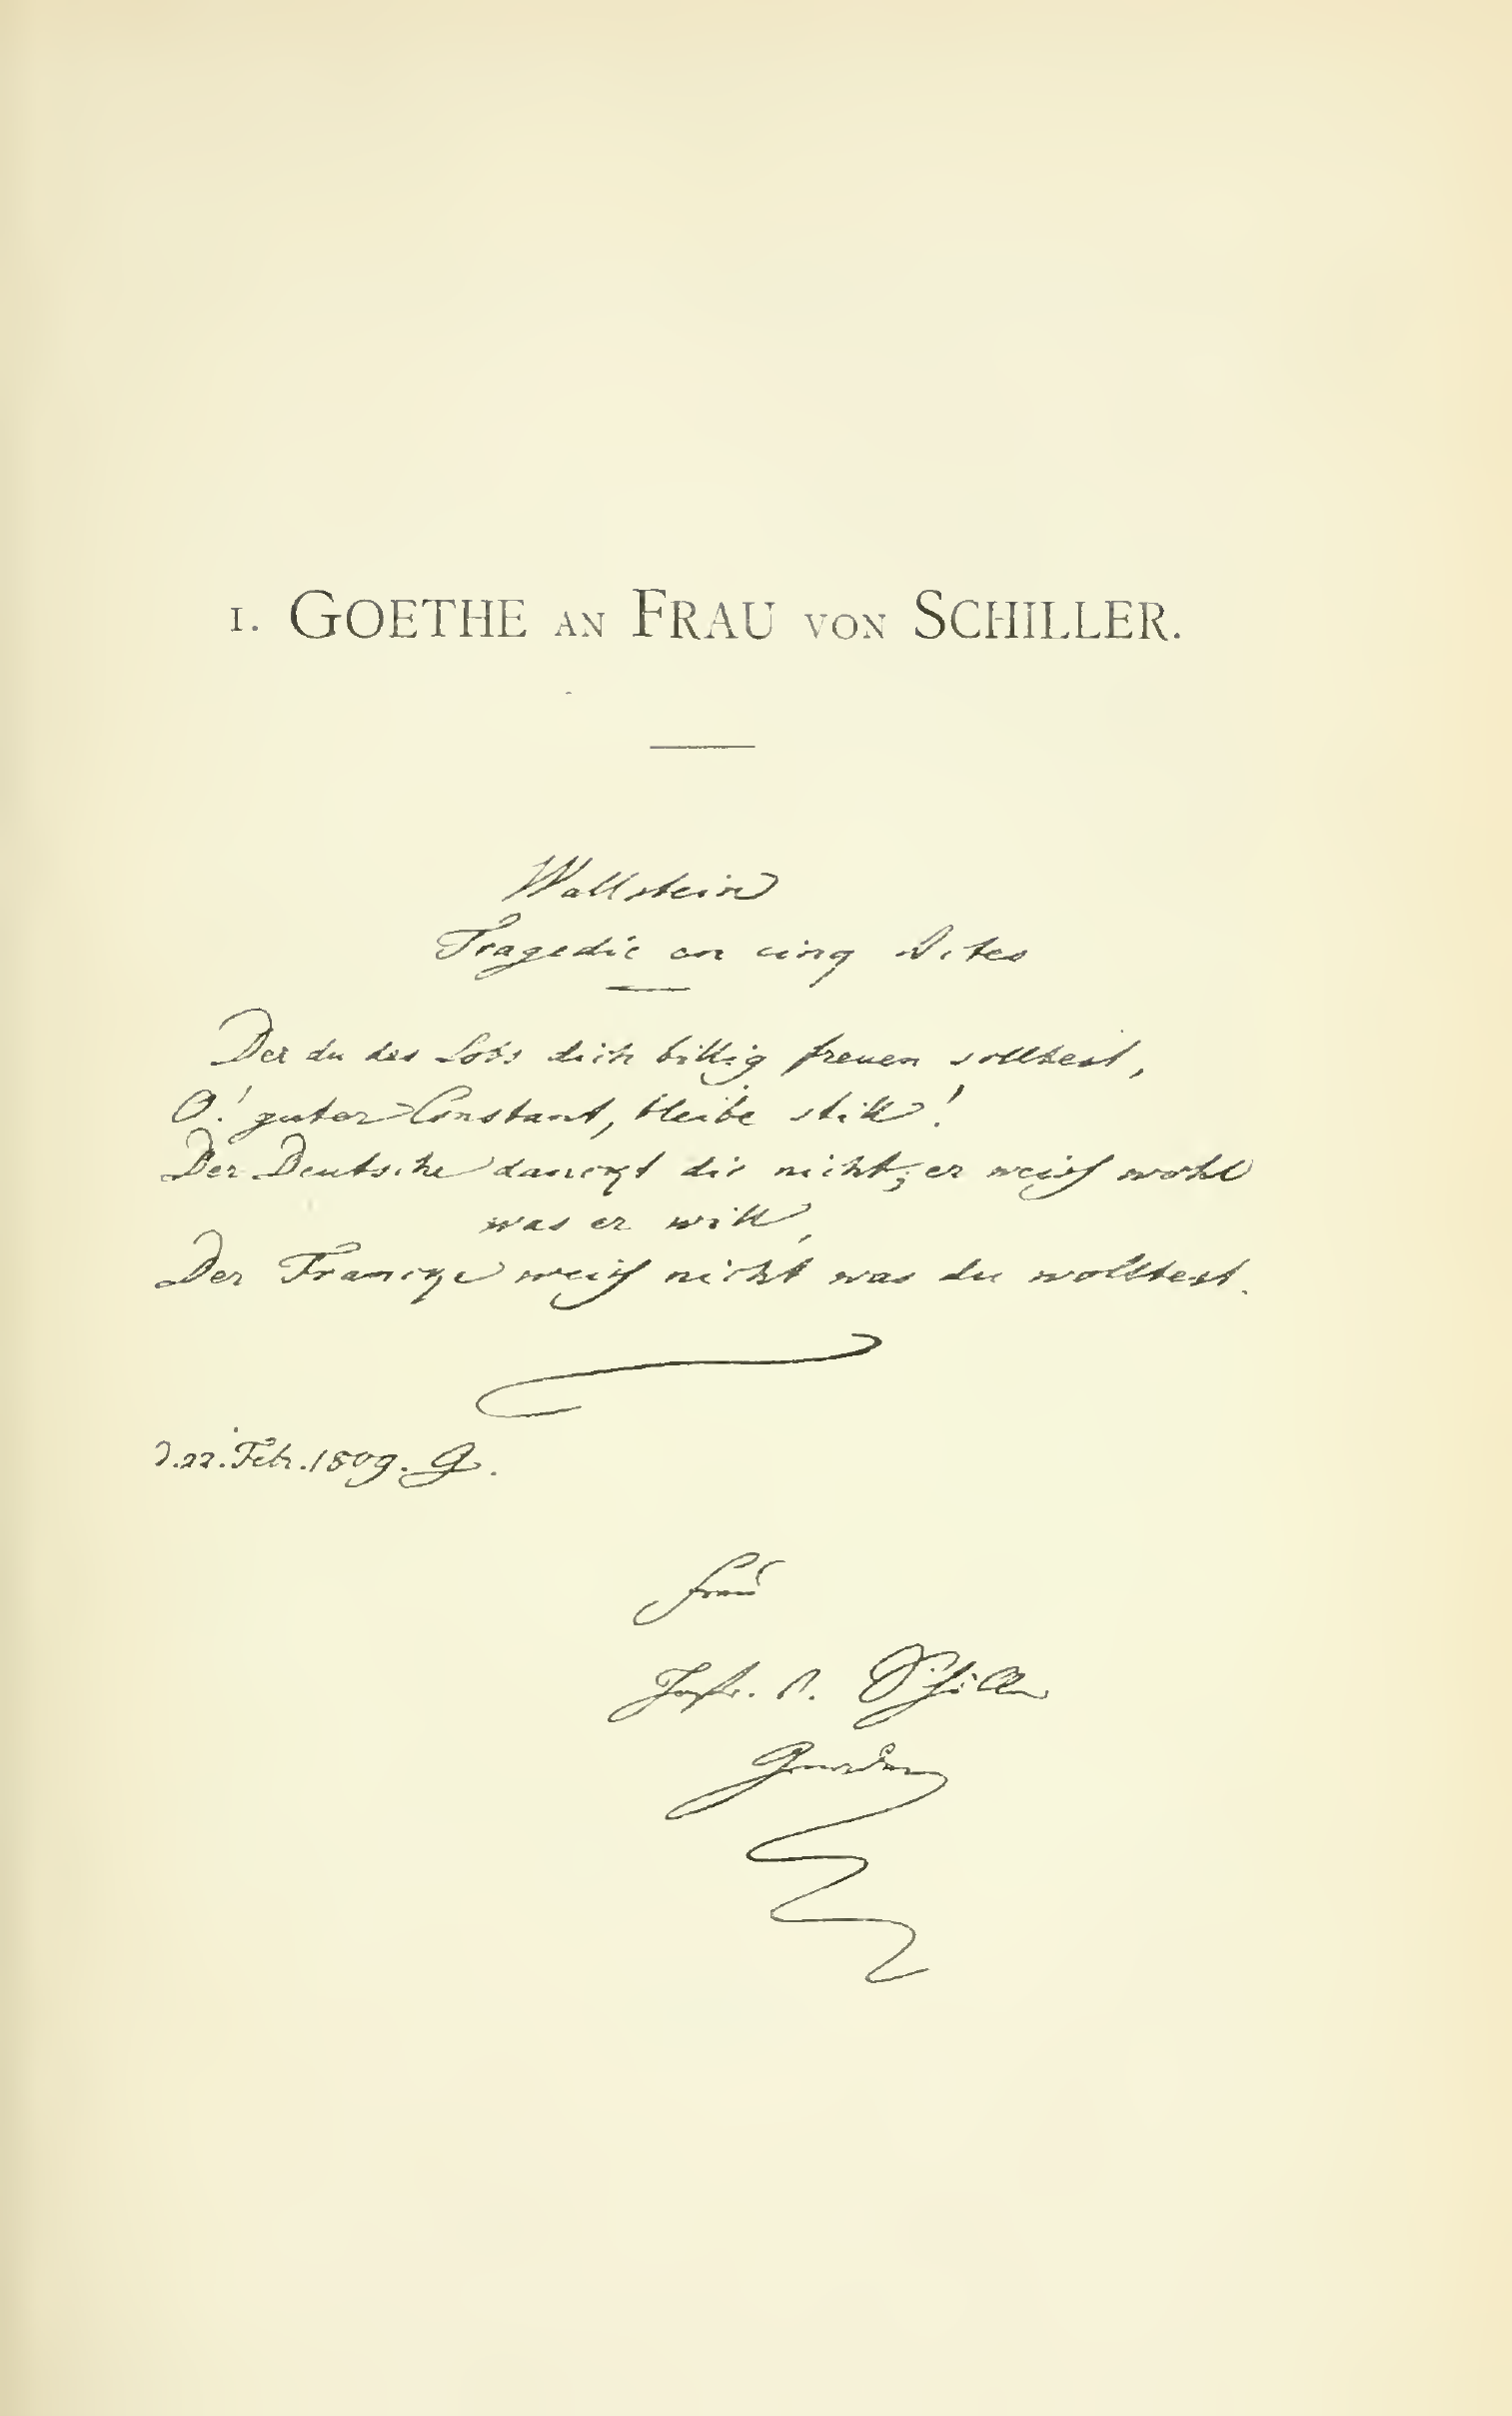 1. GOETHE AN FRAU VON SCHILLER.
Wallstein
Tragedie en cinq Actes
Der du des Lobs dich billig freuen solltest,
O! guter Constant, bleibe still!
Der Deutsche danckt dir nicht, er weiss wohl
was er will,
Der Francke weiss nicht was du wolltest.
d. 22. Febr. 1809. G.
Frau
v. Schiller
Gnaden